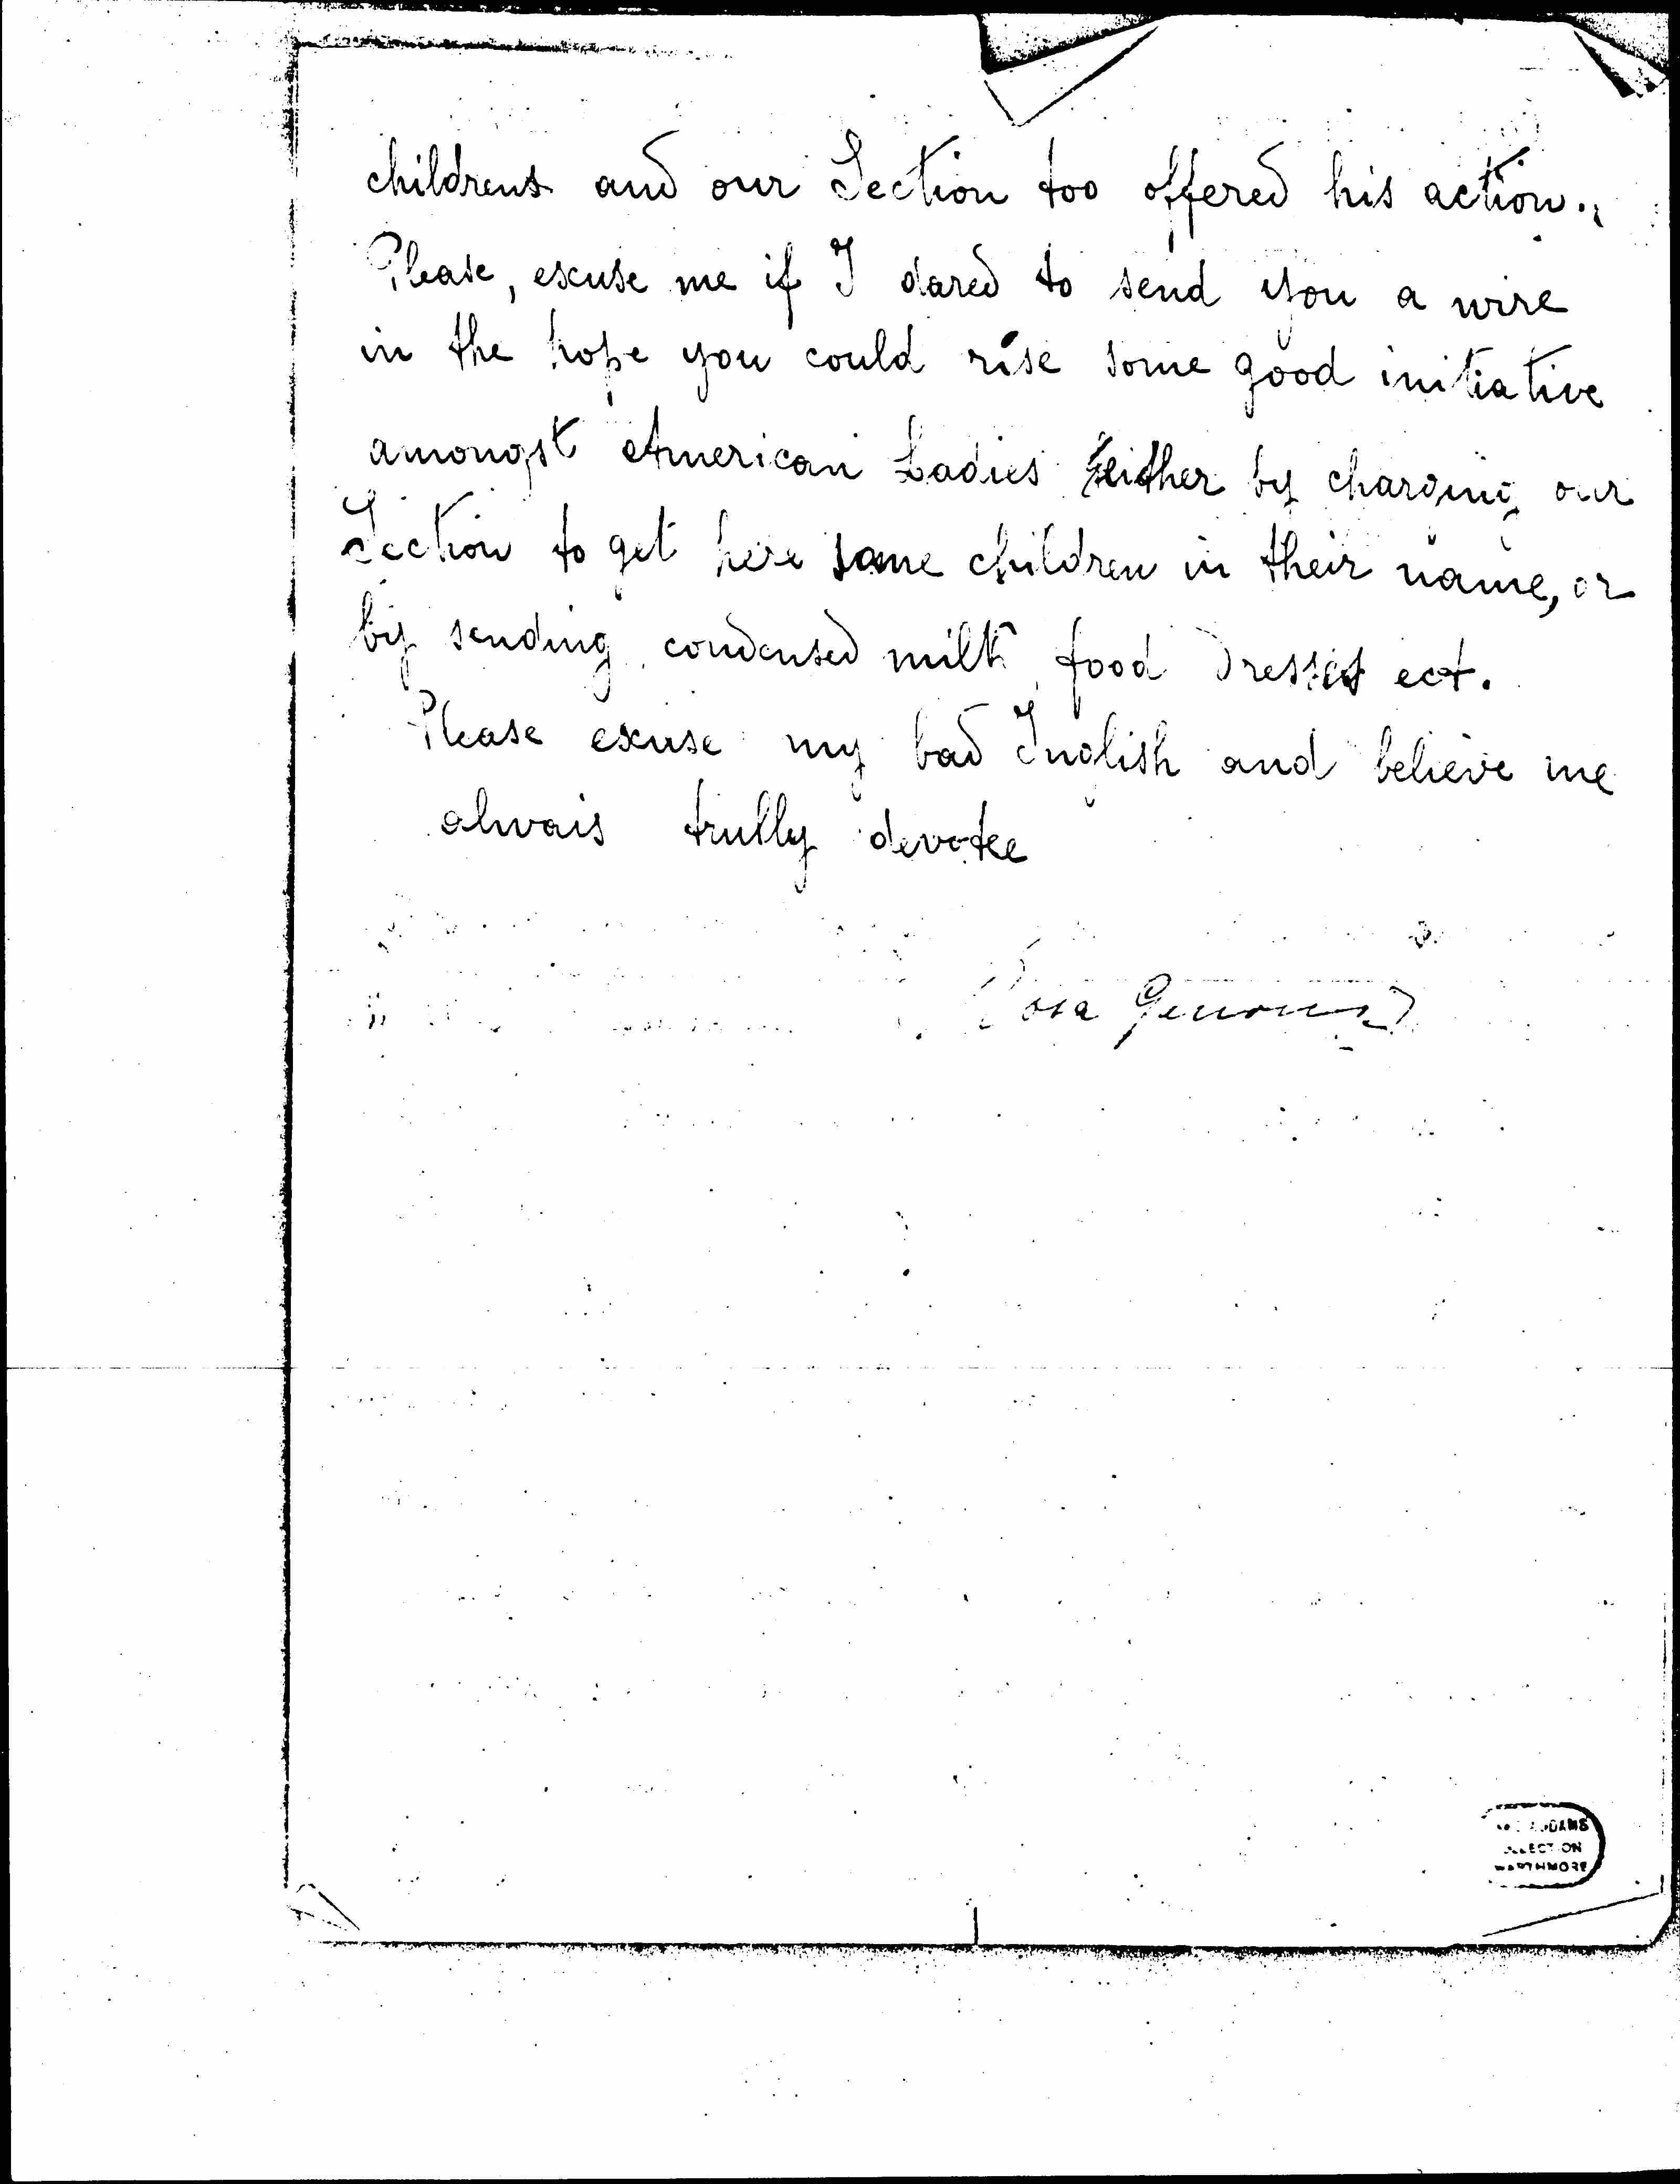 childrens and our Section too offered his action.
Please, escuse me if I dared to send you a wire
in the hope you could rise some good initiative
amongst American Ladies either by charging our
Section to get here some children in their name, or
by sending condensed milk food dresses ect.
Please excuse my bad Inglish and believe me
alwais trully devotee
Rosa Genoni
ADDAMS